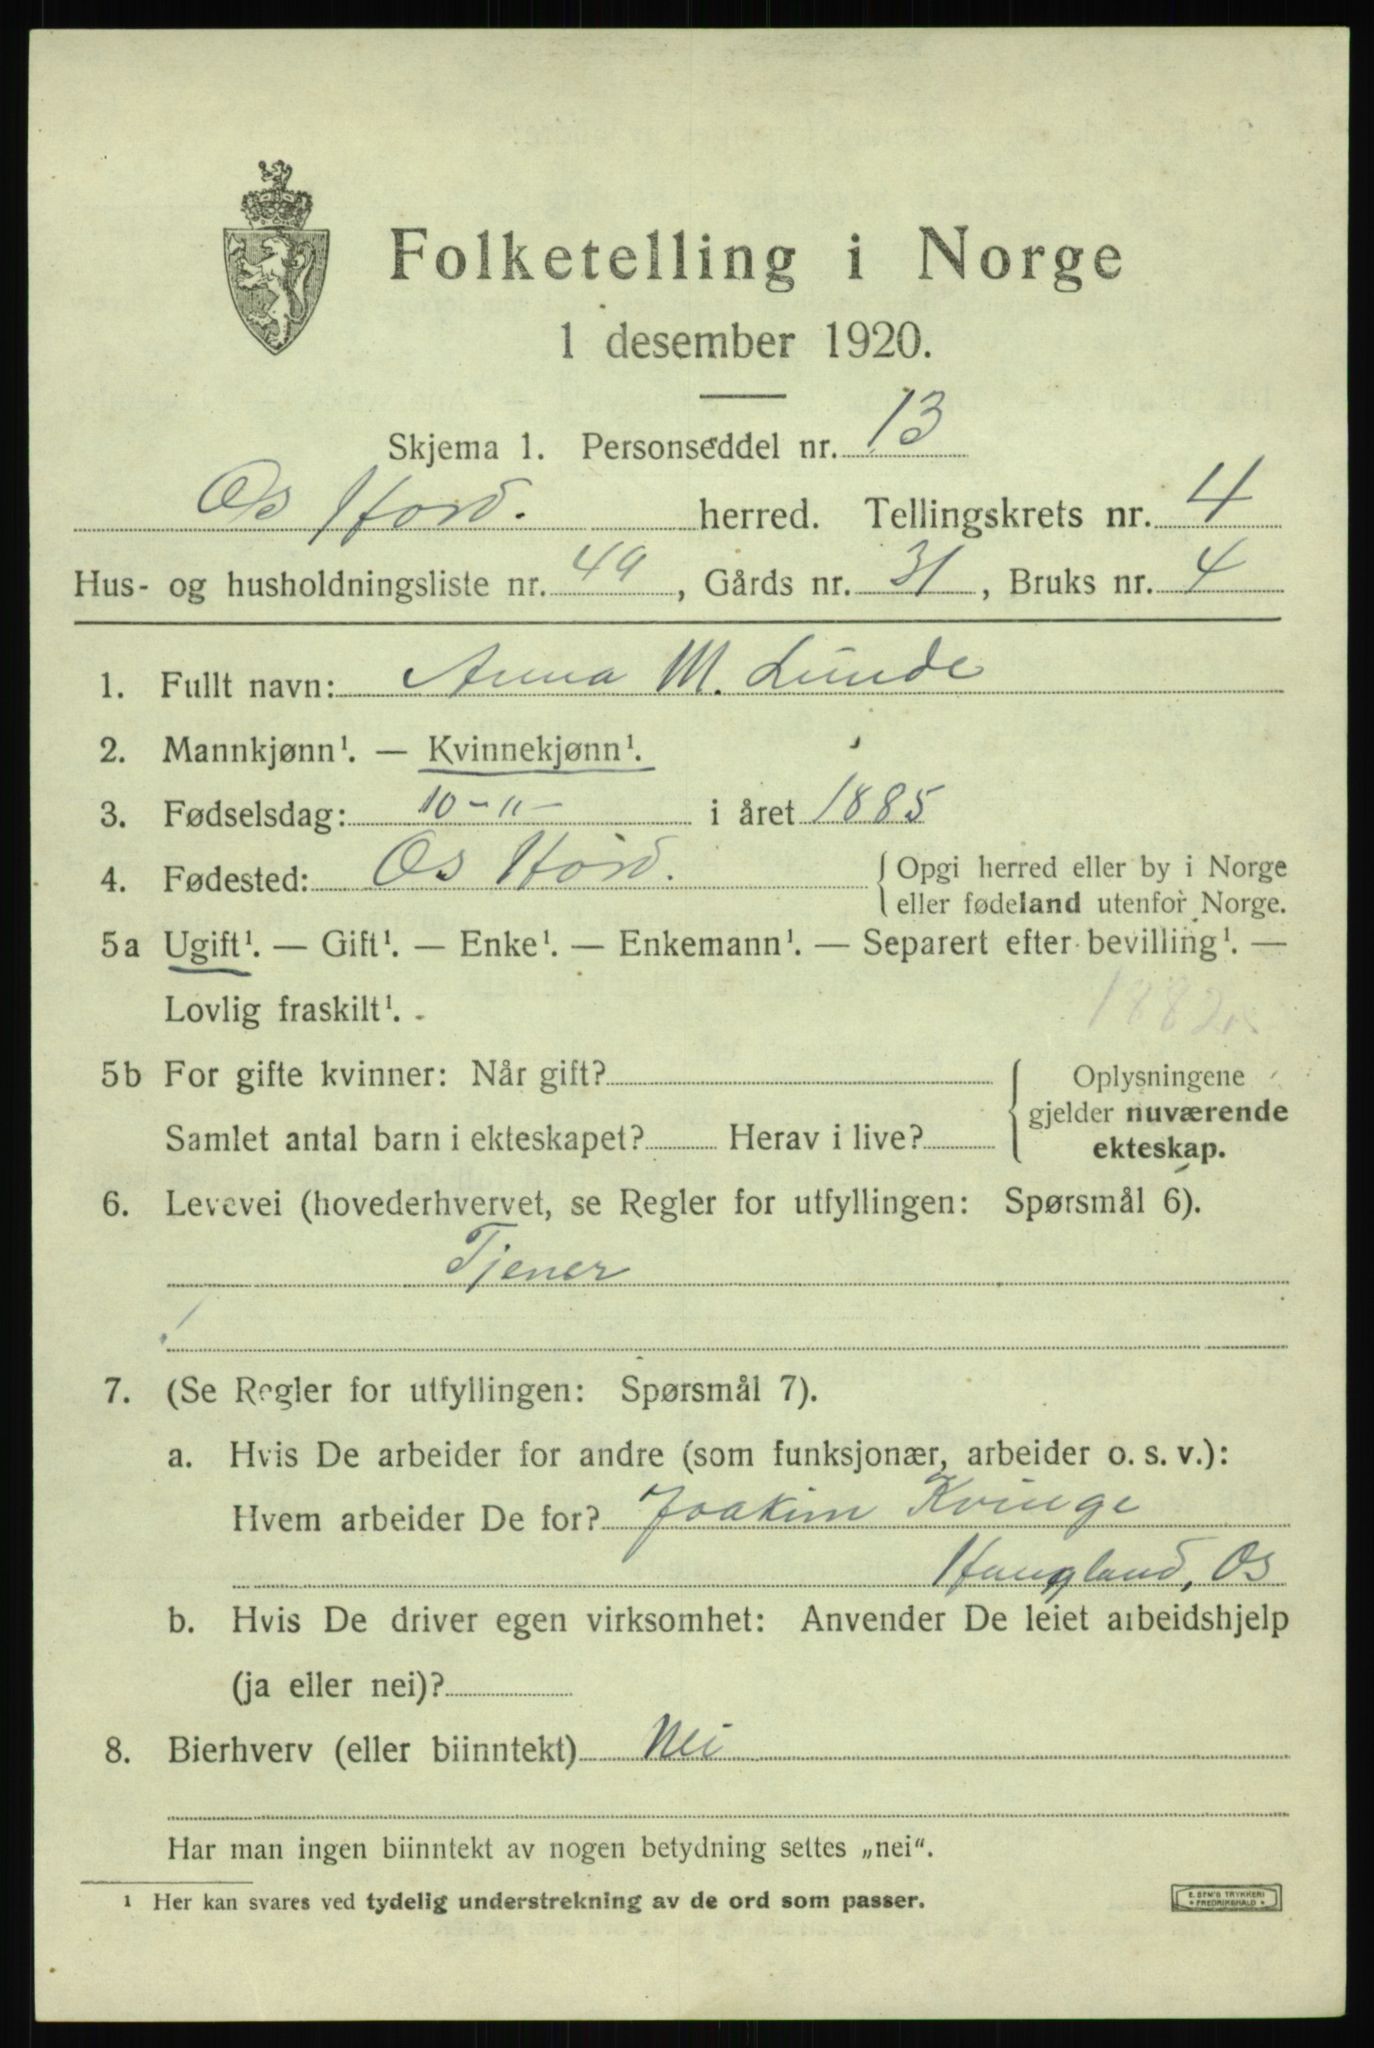 Folketelling i Norge
1 desember 1920.
Skjema 1. Personseddel nr. 13
Os Hord. herred. Tellingskrets nr. 4
Hus- og husholdningsliste nr. 49, Gårds nr. 31, Bruks nr. 4
1. Fullt navn: Anna M. Lunde
2. Mannkjønn¹. — Kvinnekjønn¹.
3. Fødselsdag: 10-11- i året 1885
4. Fødested: Os Hord. { Opgi herred eller by i Norge
eller fødeland utenfor Norge.
5a Ugift¹. — Gift¹. — Enke¹. — Enkemann¹. — Separert efter bevilling¹. —
Lovlig fraskilt¹.
5b For gifte kvinner: Når gift? { Oplysningene
gjelder nuværende
Samlet antal barn i ekteskapet? Herav i live? ekteskap.
6. Levevei (hovederhvervet, se Regler for utfyllingen: Spørsmål 6).
Tjener
7. (Se Regler for utfyllingen: Spørsmål 7).
a. Hvis De arbeider for andre (som funksjonær, arbeider o. s. v.):
Hvem arbeider De for? Joakim Kvinge
Haugland, Os
b. Hvis De driver egen virksomhet: Anvender De leiet arbeidshjelp
(ja eller nei)?
8. Bierhverv (eller biinntekt) Nei
Har man ingen biinntekt av nogen betydning settes „nei“.
¹ Her kan svares ved tydelig understrekning av de ord som passer.
E. SEM'S TRYKKERI
FREDRIKSHALD